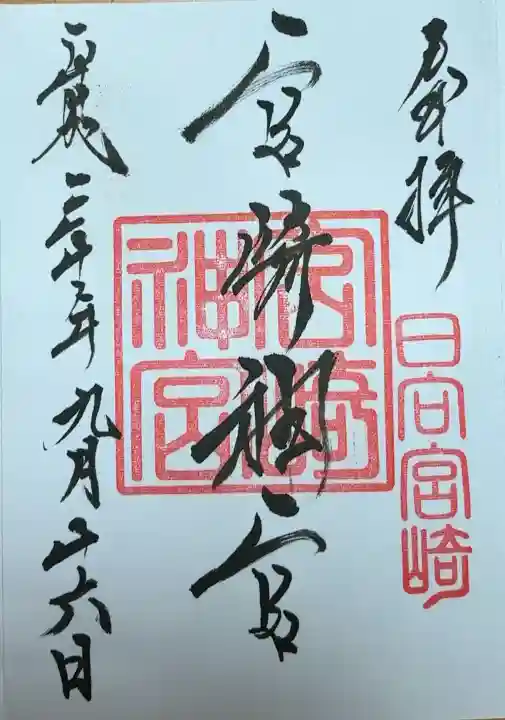 奉拝
日向宮崎
宮崎神宮
宮崎神宮
平成二十二年九月廿六日